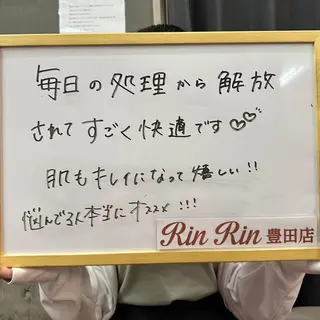 毎日の処理から解放
されてすごく快適です♡♡
肌もキレイになって嬉しい!!
悩んでる人本当にオススメ!!!
Rin Rin 豊田店